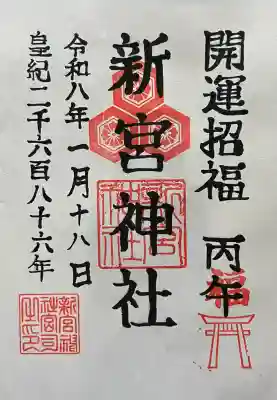 開運招福 丙午
福
新宮神社
令和八年一月十八日
皇紀二千六百八十六年
新宮神社宮司之印